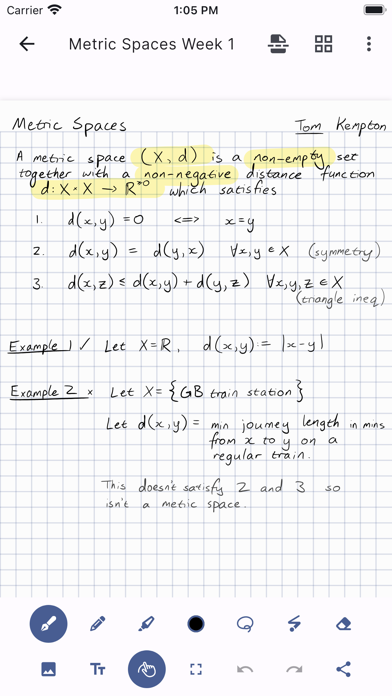 Carrier 1:05 PM
Metric Spaces Week 1
Metric Spaces Tom Kempton
A metric space (X, d) is a non-empty set
together with a non-negative distance function
d: X × X → R^≥0 which satisfies
1. d(x,y) = 0 <=> x=y
2. d(x,y) = d(y,x) ∀x,y ∈ X (symmetry)
3. d(x,z) ≤ d(x,y) + d(y,z) ∀x,y,z ∈ X
(triangle ineq)
Example 1 / Let X=ℝ, d(x,y):= |x-y|
Example 2 × Let X= {GB train station}
Let d(x,y) = min journey length in mins
from x to y on a
regular train.
This doesn't satisfy 2 and 3 so
isn't a metric space.
Tт